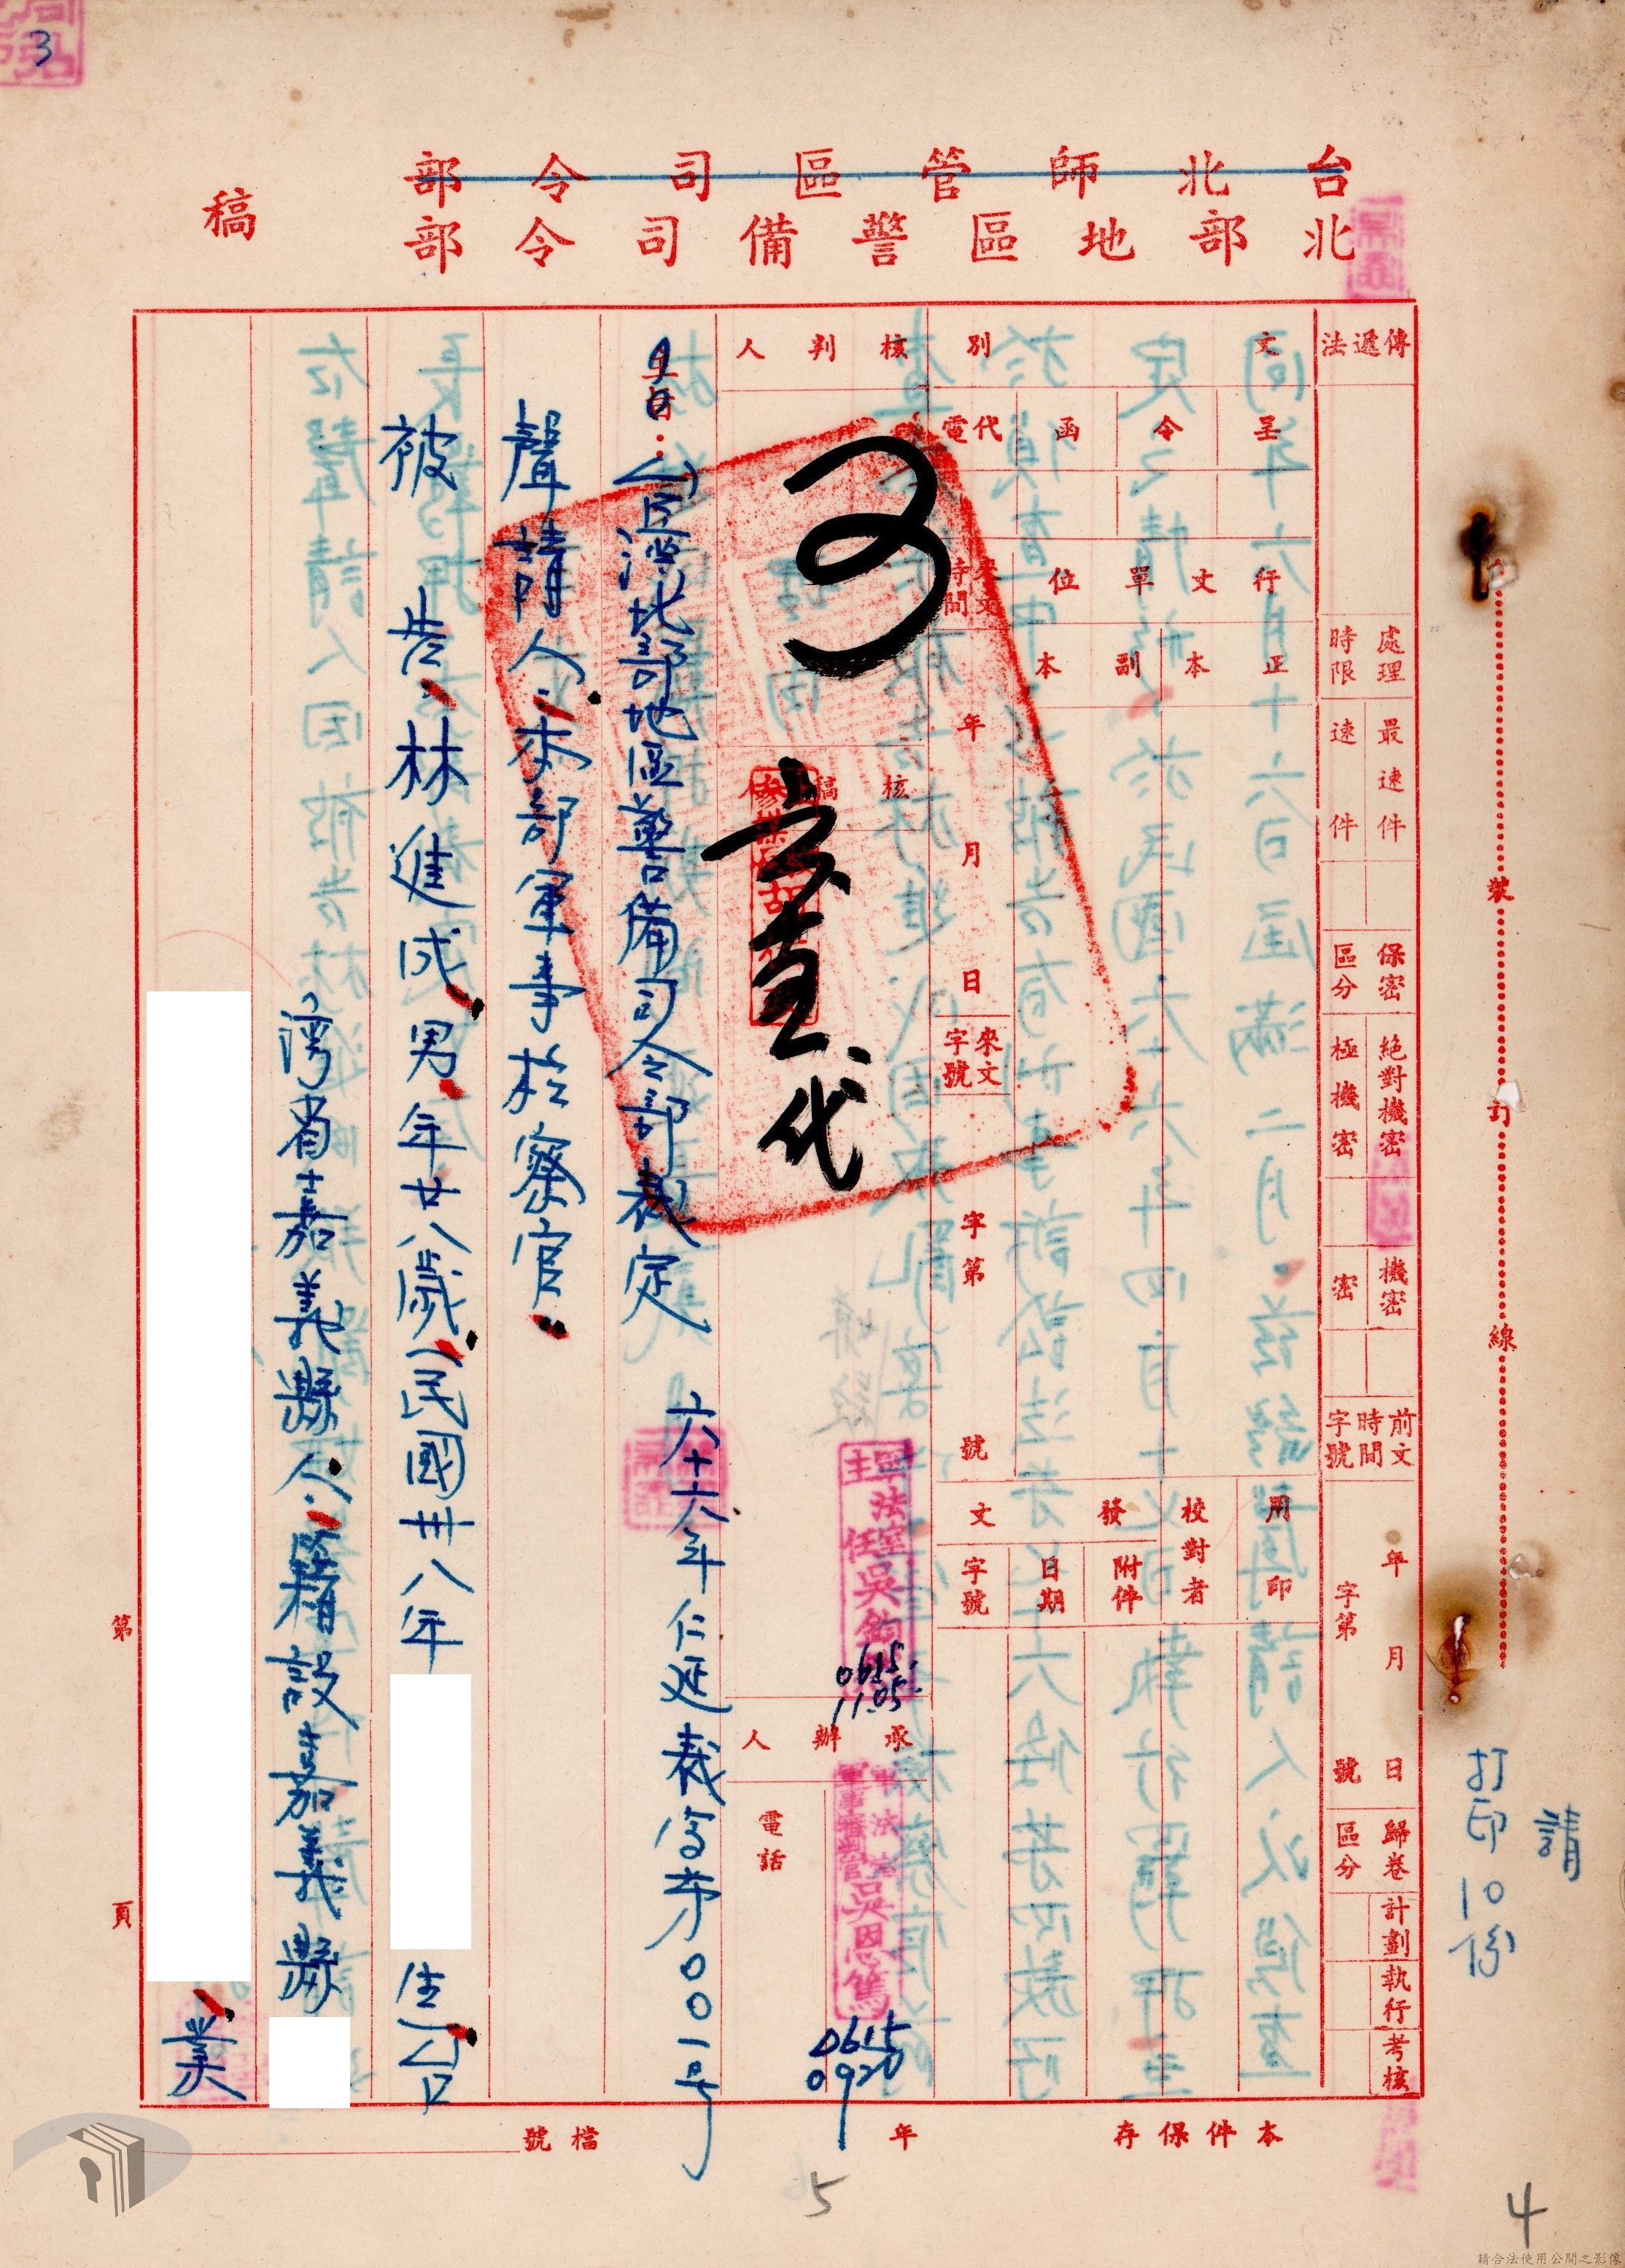 3
台北師管區司令部
北部地區警備司令部
稿
傳遞法
處理時限
最速件
速件
保密區分
絕對機密
極機密
機密
密
前文時間字號
年月日
字第號
歸卷區分
計劃
執行
考核
文別
呈
令
函
代電
行文單位
正本
副本
來文時間
年月日
來文字號
字第號
用印
校對者
發文
附件
日期
字號
核判人
可
核稿人
代
承辦人
電話
主任
吳鈞
0615
1105
軍事審判官吳恩篤
0615
0920
北部地區警備司令部裁定
六十六年仁延裁字第〇〇一号
聲請人:本部軍事檢察官。
被告:林進成,男,年廿八歲(民國卅八年
生),台
灣省嘉義縣人,籍設嘉義縣
,業
第頁
裝訂線
請
打印10份
本件保存
年
檔號
5
4
請合法使用公開之影像